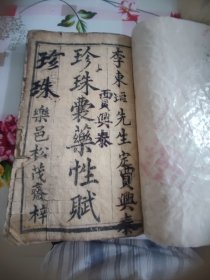 李東垣先生定賈興泰
珍珠囊藥性賦
賈興泰
珍珠
樂邑松茂齋梓